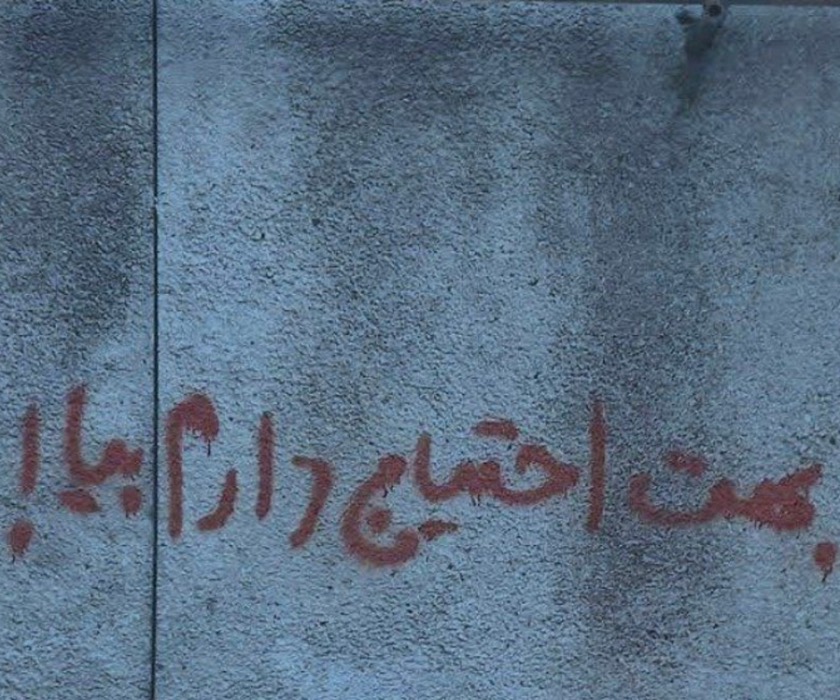 بهت احتیاج دارم بیا!